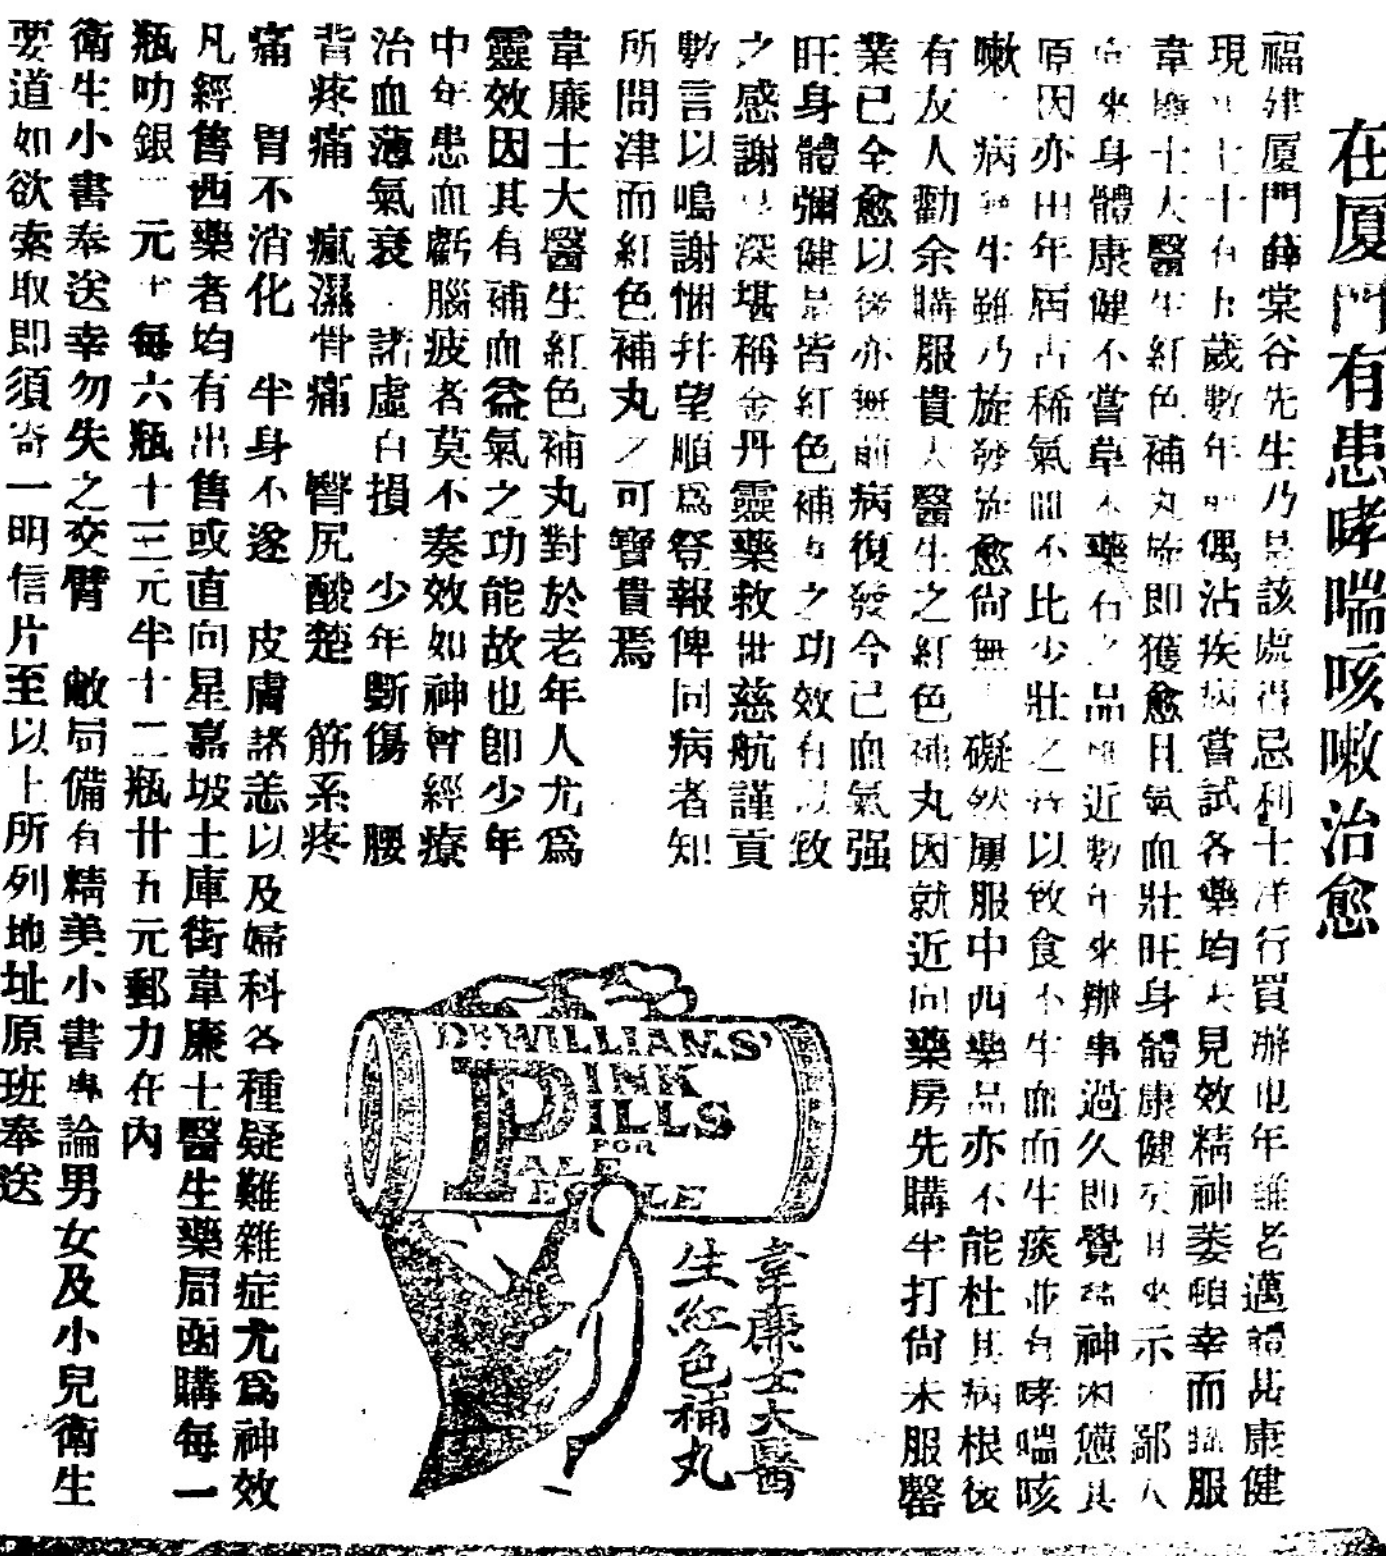 在厦門有患哮喘咳嗽治愈
福建厦門薛棠谷先生乃是該處得忌利士洋行買辦也年雖老邁體甚康健
現年七十有五歲數年前偶沾疾病嘗試各藥均未見效精神萎頓幸而服
韋廉士大醫生紅色補丸旋即獲愈且氣血壯旺身體康健矣其來示鄙人
向來身體康健不嘗草木藥石之品近數年來辦事過久即覺精神困憊其
原因亦由年屆古稀氣血不比少壯之時以致食不生血而生痰並有哮喘咳
嗽之病發生雖乃旋發旋愈尙無礙然屢服中西藥品亦不能杜其病根後
有友人勸余購服貴大醫生之紅色補丸因就近向藥房先購半打尙未服罄
業已全愈以後亦無前病復發今已血氣强
旺身體彌健是皆紅色補丸之功效有以致
之感謝深堪稱金丹靈藥救世慈航謹貢
數言以鳴謝悃幷望順爲登報俾同病者知
所問津而紅色補丸之可寶貴焉
韋廉士大醫生紅色補丸對於老年人尤爲
靈效因其有補血益氣之功能故也卽少年
中年患血虧腦疲者莫不奏效如神曾經療
治血薄氣衰 諸虛百損 少年斵傷 腰
背疼痛 瘋濕骨痛 臀尻酸楚 筋系疼
痛 胃不消化 半身不遂 皮膚諸恙以及婦科各種疑難雜症尤爲神效
凡經售西藥者均有出售或直向星嘉坡土庫街韋廉士醫生藥局函購每一
瓶叻銀二元半每六瓶十三元半十二瓶廿五元郵力在內
衛生小書奉送幸勿失之交臂 敝局備有精美小書專論男女及小兒衛生
要道如欲索取即須寄一明信片至以上所列地址原班奉送
DR WILLIAMS'
PINK
PILLS
FOR
PALE
PEOPLE
韋廉士大醫
生紅色補丸